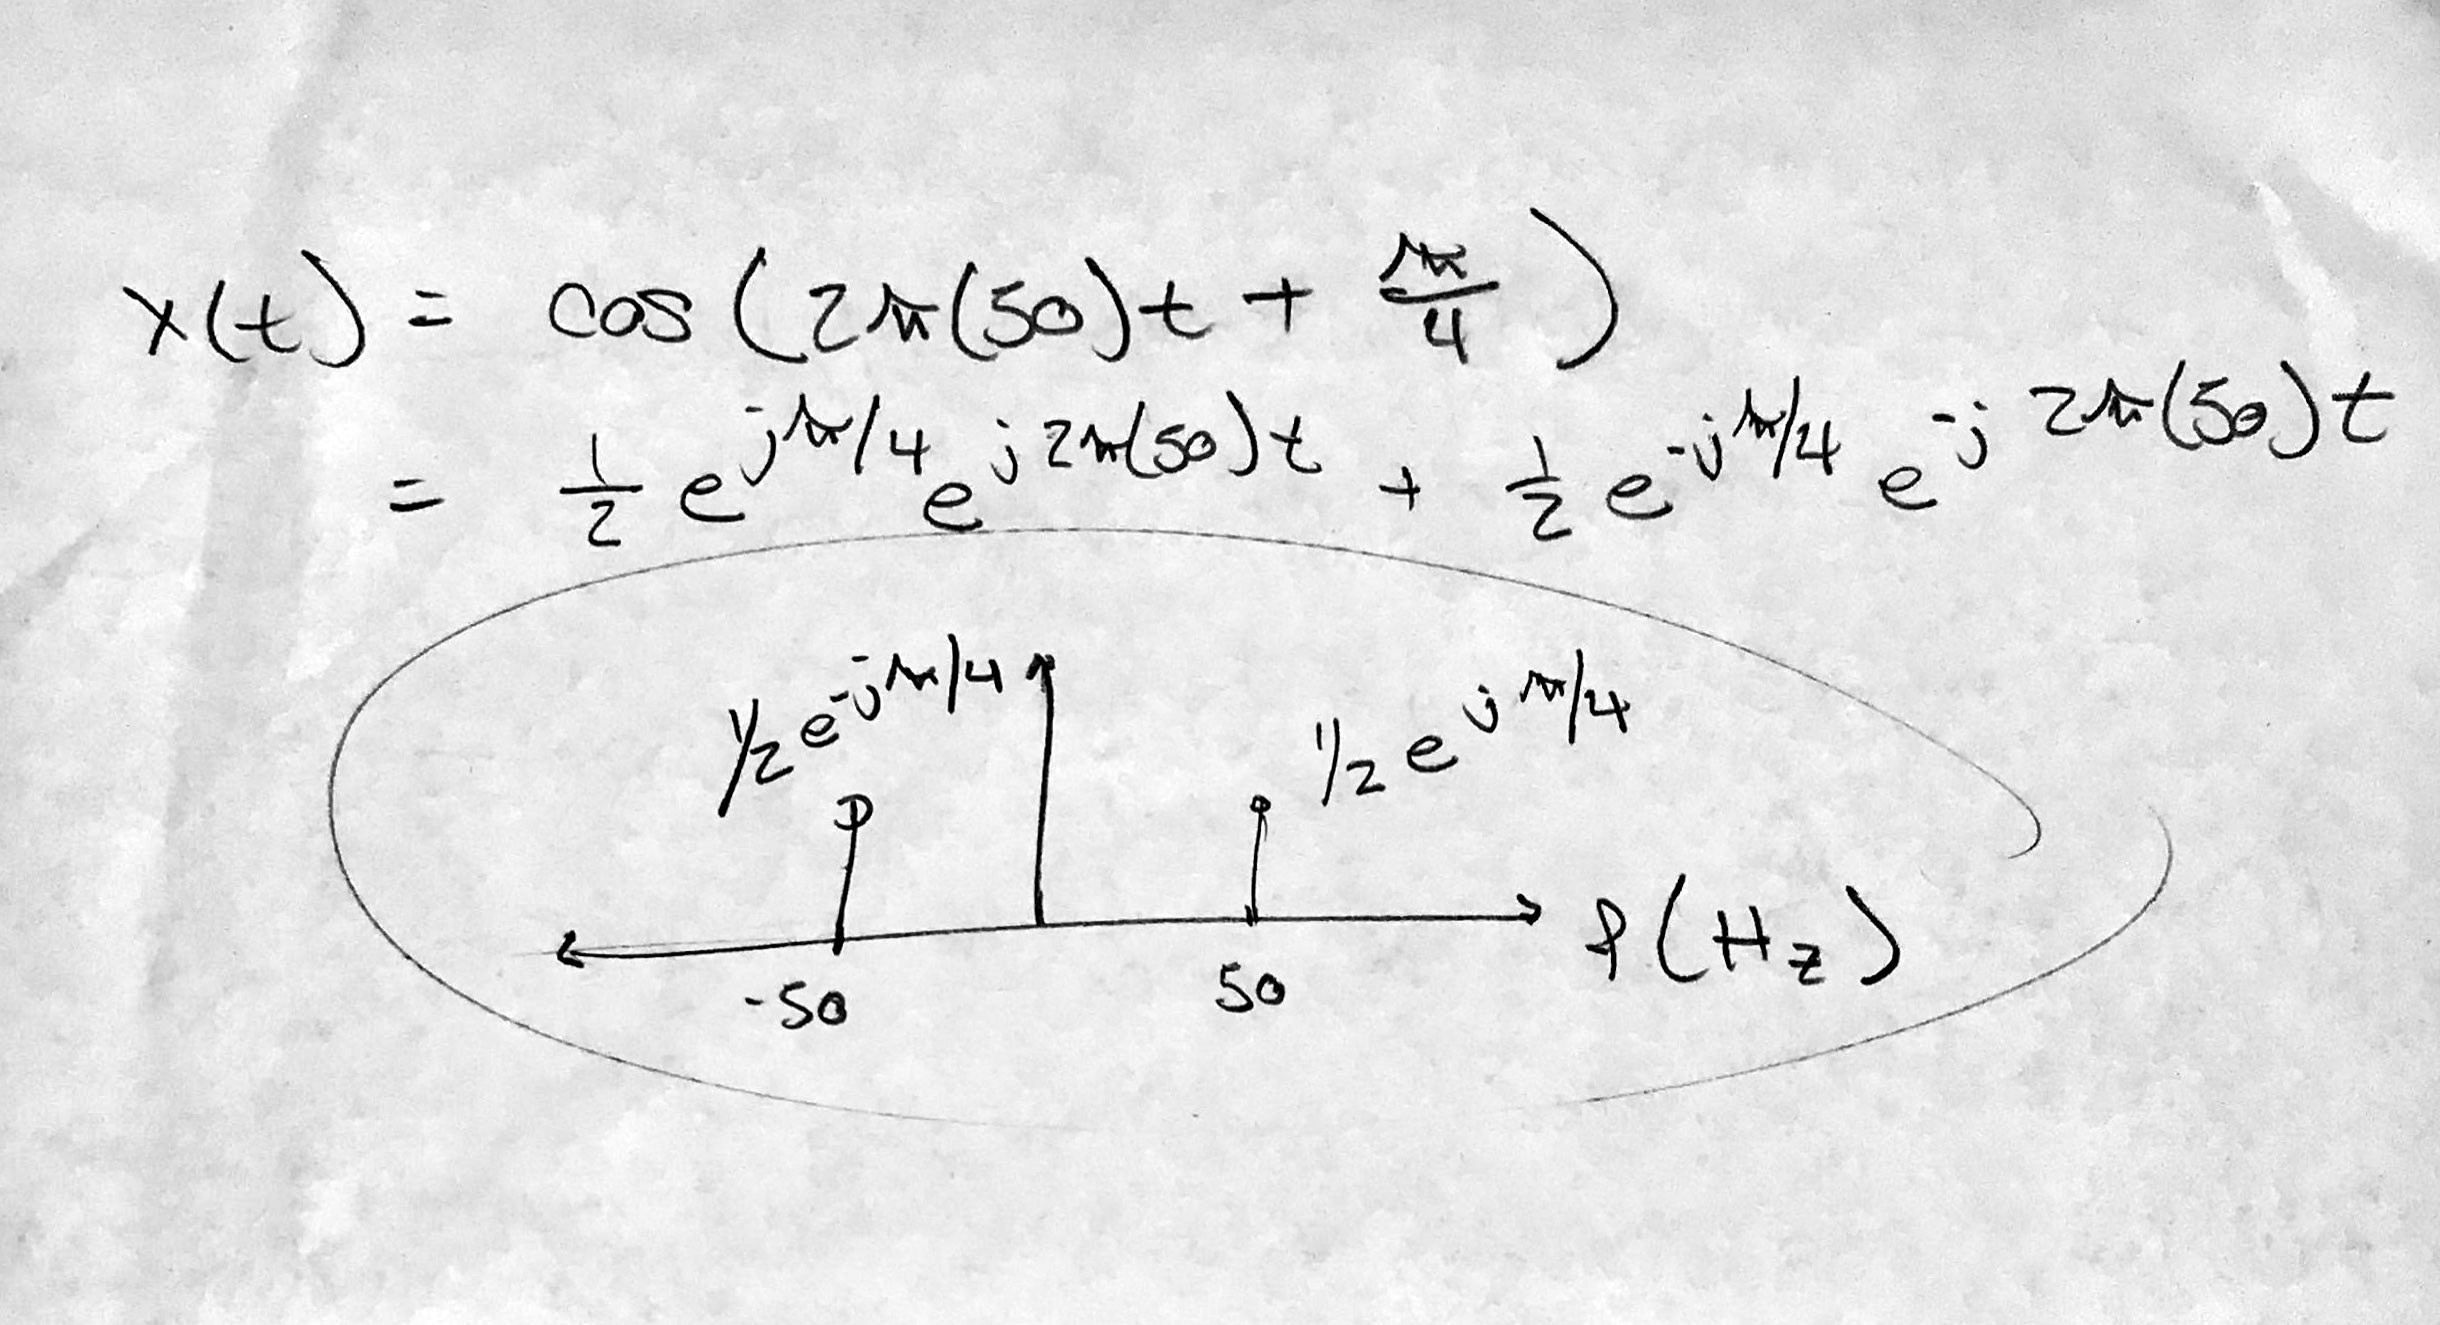 x(t) = cos(2π(50)t + π/4)
= 1/2 e^{jπ/4} e^{j2π(50)t} + 1/2 e^{-jπ/4} e^{-j2π(50)t}
1/2 e^{-jπ/4} 1/2 e^{jπ/4}
f(Hz)
-50 50